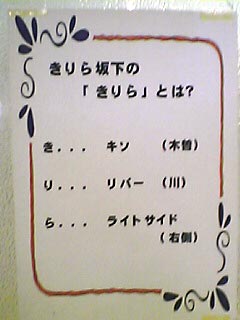 きりら坂下の
「きりら」とは?
き... キソ (木曽)
り... リバー (川)
ら... ライトサイド
(右側)